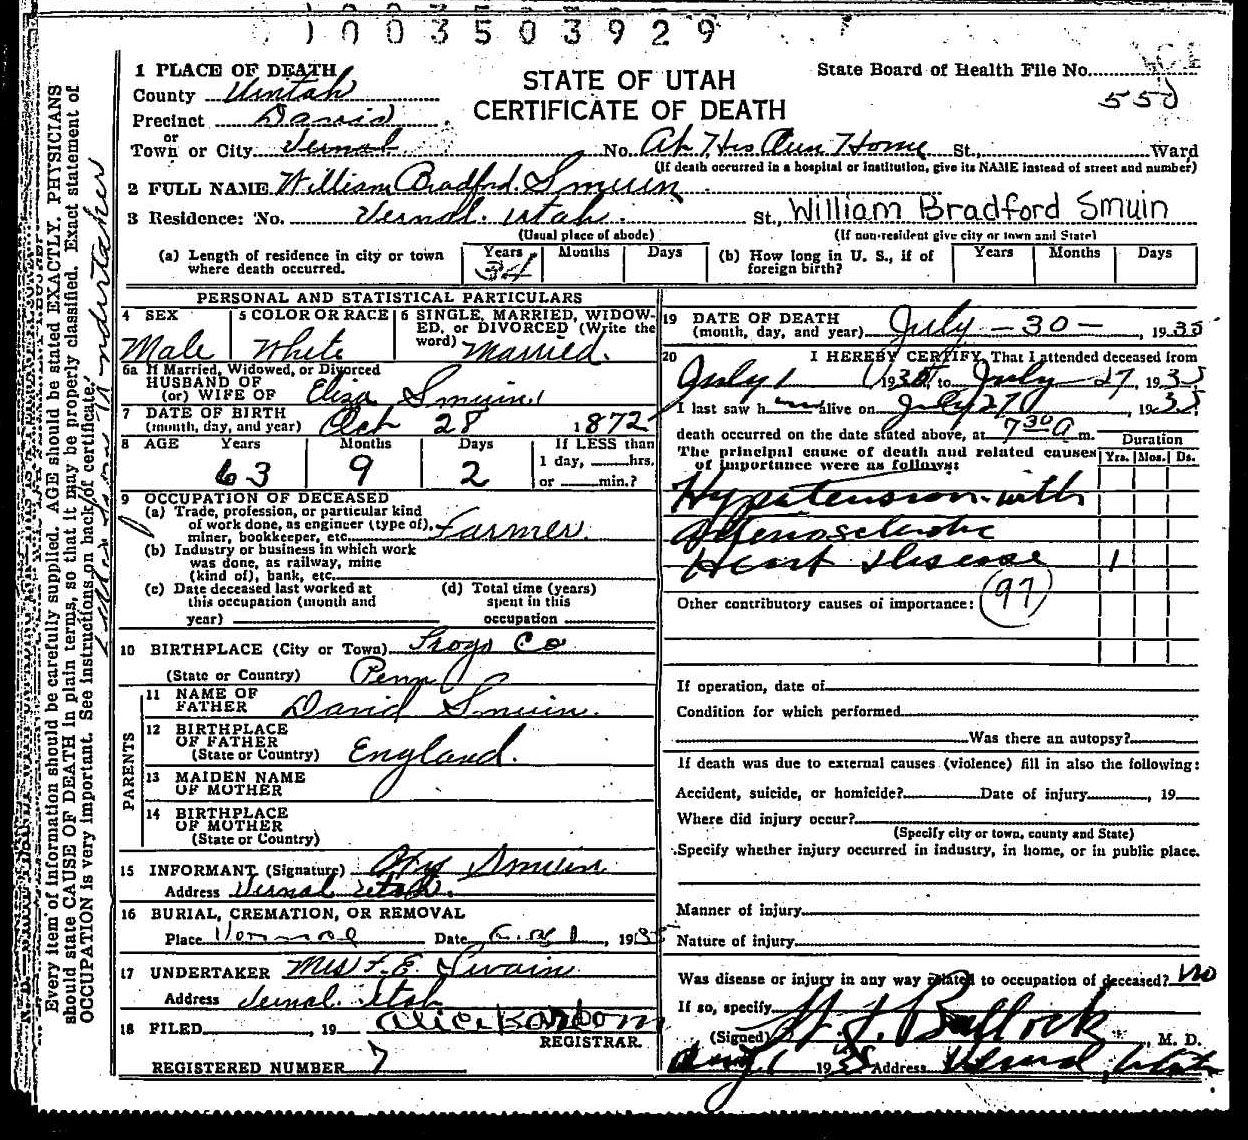 1003503929
1 PLACE OF DEATH
STATE OF UTAH
CERTIFICATE OF DEATH
State Board of Health File No.
550
County Uintah
Precinct Davis
or
Town or City Vernal No. At His Own Home St., Ward
(If death occurred in a hospital or institution, give its NAME instead of street and number)
2 FULL NAME William Bradford Smuin
3 Residence: No. Vernal, Utah. St., William Bradford Smuin
(Usual place of abode) (If non-resident give city or town and State)
(a) Length of residence in city or town where death occurred. Years 34 Months Days
(b) How long in U. S., if of foreign birth? Years Months Days
PERSONAL AND STATISTICAL PARTICULARS
4 SEX Male
5 COLOR OR RACE White
6 SINGLE, MARRIED, WIDOW-
ED, or DIVORCED (Write the
word) Married.
6a If Married, Widowed, or Divorced
HUSBAND OF
(or) WIFE OF Eliza Smuin
7 DATE OF BIRTH
(month, day, and year) Oct 28 1872
8 AGE Years 63 Months 9 Days 2
If LESS than
1 day, hrs.
or min.?
9 OCCUPATION OF DECEASED
(a) Trade, profession, or particular kind
of work done, as engineer (type of),
miner, bookkeeper, etc. Farmer.
(b) Industry or business in which work
was done, as railway, mine
(kind of), bank, etc.
(c) Date deceased last worked at
this occupation (month and
year)
(d) Total time (years)
spent in this
occupation
10 BIRTHPLACE (City or Town) Co
(State or Country) Penn
PARENTS
11 NAME OF
FATHER David Smuin.
12 BIRTHPLACE
OF FATHER
(State or Country) England.
13 MAIDEN NAME
OF MOTHER
14 BIRTHPLACE
OF MOTHER
(State or Country)
15 INFORMANT (Signature) Smuin
Address Vernal Utah.
16 BURIAL, CREMATION, OR REMOVAL
Place Vernal Date Aug 1, 1935
17 UNDERTAKER Mrs F. E. Swain
Address Vernal. Utah
18 FILED , 19 Alice
REGISTRAR.
REGISTERED NUMBER 7
19 DATE OF DEATH
(month, day, and year) July - 30 - , 1935
20 I HEREBY CERTIFY, That I attended deceased from
July 1 1935, to July 27, 1935
I last saw him alive on July 27, 1935.
death occurred on the date stated above, at 7 30 A m.
The principal cause of death and related causes
of importance were as follows:
Duration
Yrs. Mos. Ds.
Hypertension with
arteriosclerotic
Heart Disease 1
(97)
Other contributory causes of importance:
If operation, date of
Condition for which performed
Was there an autopsy?
If death was due to external causes (violence) fill in also the following:
Accident, suicide, or homicide? Date of injury , 19
Where did injury occur?
(Specify city or town, county and State)
Specify whether injury occurred in industry, in home, or in public place.
Manner of injury
Nature of injury
Was disease or injury in any way related to occupation of deceased? no
If so, specify
(Signed) Bullock, M. D.
Aug 1 1935 Address Vernal, Utah
Every item of information should be carefully supplied. AGE should be stated EXACTLY. PHYSICIANS
should state CAUSE OF DEATH in plain terms, so that it may be properly classified. Exact statement of
OCCUPATION is very important. See instructions on back of certificate.
Undertaker